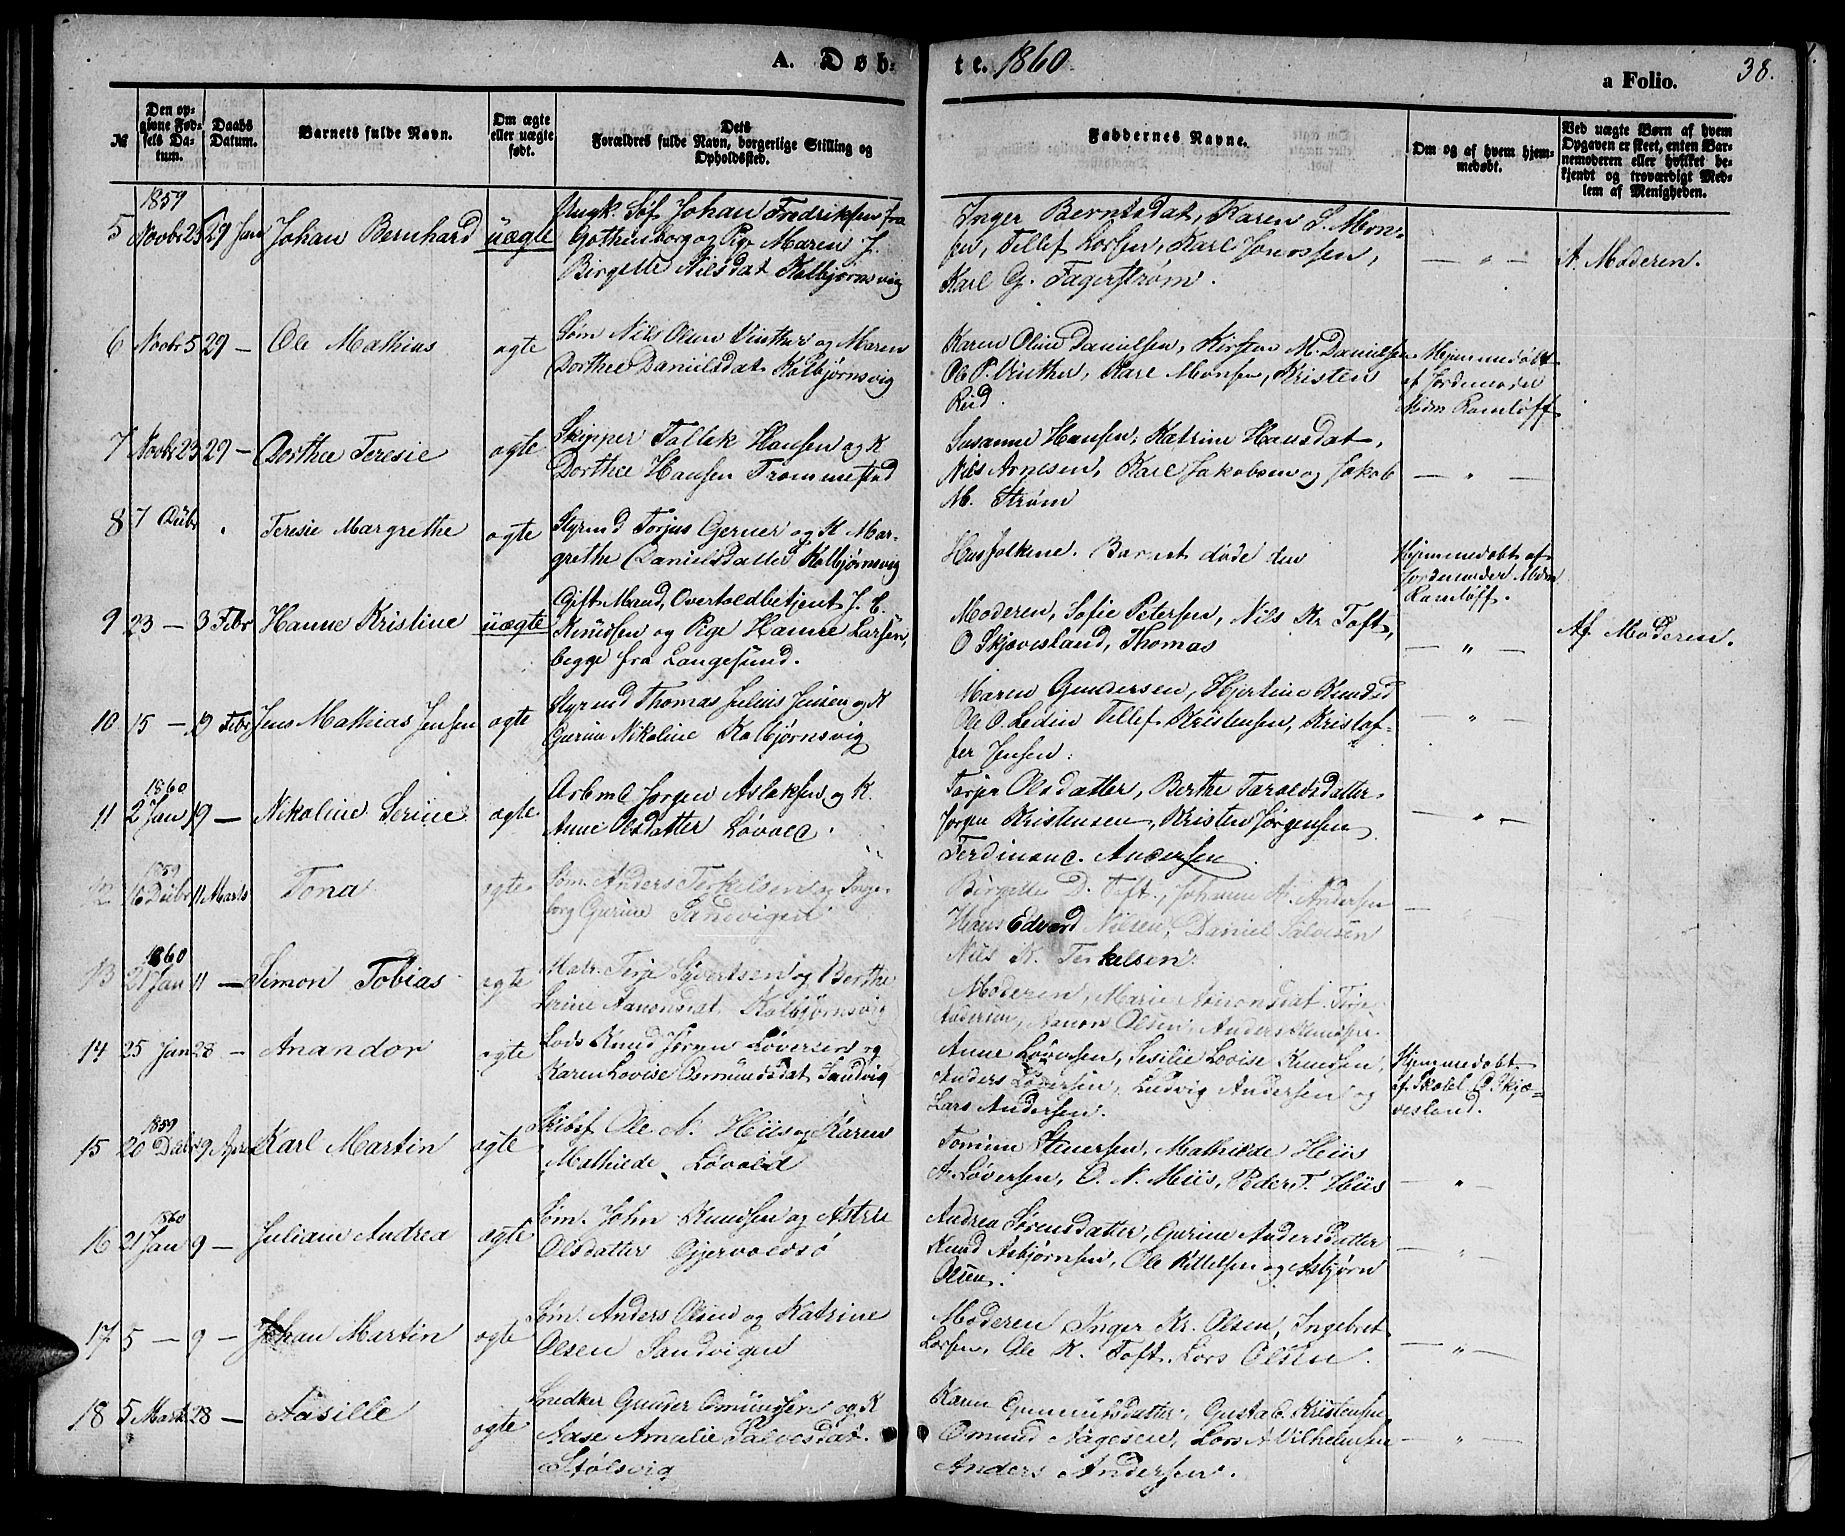 A. Døb-
te. 1860
a Folio.
38.
№
Den op-
givne Fød-
sels Da-
tum.
Daabs
Datum.
Barnets fulde Navn.
Om ægte
eller uægte
født.
Dets
Forældres fulde Navn, borgerlige Stilling og
Opholdssted.
Faddernes Navne.
Om og af hvem hjem-
medøbt.
Ved uægte Børn af hvem
Opgaven er skeet, enten Bar-
nemoderen eller hvilket be-
kjendt og troværdigt Med-
lem af Menigheden.
1859
5 Novbr 25 29 Jan Johan Bernhard uægte
Ungk. Søf Johan Fredriksen fra
Gothenborg og Pige Maren J.
Birgette Nilsdat Kolbjørnsvig
Inger Berntsdat, Karen S. Mon-
sen, Tellef Larsen, Karl Jonossen,
Karl G. Fagerstrøm.
— " —
A. Moderen.
6 Novbr 5 29 — Ole Mathias ægte
Søm Nils Olsen Vinther og Maren
Dorthea Danielsdat Kolbjørnsvig
Karen Oline Danielsen, Kirsten M. Danielsen
Ole P. Vinther, Karl Monsen, Kristen
Reid.
Hjemmedøbt
af Jordemoder
Mdm Ramløff
7 Novbr 23 29 — Dorthea Teresie ægte
Skipper Tallek Hansen og K
Dorthea Hansen Frommestad
Susanne Hansen, Katrine Hansdat,
Nils Arnesen, Karl Jakobsen og Jakob
M. Strøm
— " —
8 7 Dcbr " Teresie Margrethe ægte
Styrmd Torjus Gerner og K Mar-
grethe Danielsdatter Kolbjørnsvig
Husfolkene. Barnet døde den
Hjemmedøbt af
Jordemoder Mdm
Ramløff.
9 23 — 3 Febr Hanne Kristine uægte
Gift Mand, Overtoldbetjent J. C.
Knudsen og Pige Hanne Larsen,
begge fra Langesund.
Moderen, Sofie Petersen, Nils Kr Toft,
O Skjævesland, Thomas
— " —
Af Moderen.
10 15 — 19 Febr Jens Mathias Jensen ægte
Styrmd Thomas Julius Jensen og K
Gurine Nikoline Kolbjørnsvig
Maren Gundersen, Hjertine Knudsd
Ole O. Ledin Tellef Kristensen, Kristof-
fer Jensen.
— " —
1860
11 2 Jan 19 — Nikoline Serine ægte
Arbmd Jørgen Aslaksen og K.
Anne Olsdatter Løvold.
Torjer Olsdatter, Berthe Taroldsdatter
Jørgen Kristensen, Kristen Jørgensen
Ferdinand Andersen
— " —
1859
12 16 Dcbr 11 Marts Tona ægte
Søm. Anders Terkelsen og Inge-
borg Gurine Sandvigen
Birgette D. Toft, Johanne A. Andersen
Hans Edvard Nilsen, Daniel Salvesen
Nils K. Terkelsen.
—
1860
13 21 Jan 11 — Simon Tobias ægte
Matr. Terje Syvertsen og Berthe
Serine Aanonsdat. Kolbjørnsvig
Moderen, Marie Aanonsdat Terje
Andersen, Aanon Olsen, Anders Knudsen.
14 25 Jan 28 — Anandor ægte
Lods Knud Jørgen Løversen og
Karen Lovise Osmundsdat Sandvig
Anne Løversen, Sesilie Lovise Knudsen,
Anders Løversen, Ludvig Andersen og
Lars Andersen.
Hjemmedøbt
af Skolel. O. Skjæ-
vesland.
1859
15 20 Dcbr 9 April Karl Martin ægte
Skibsf Ole N. Hiis og Karen
Mathilde, Løvold
Tomine Stenersen, Mathilde Hiis
A. Løversen, O. N. Hiis, Peder T. Hiis
— " —
1860
16 21 Jan 9 — Juliane Andrea ægte
Søm. John Knudsen og Astrie
Olsdatter Gjervoldsø
Andrea Sørensdatter, Gurine Andersdatter
Knud Asbjørnsen, Ole Kittelsen og Asbjørn
Olsen.
— " —
17 5 — 9 — Johan Martin ægte
Søm. Anders Olsen og Katrine
Olsen Sandvigen
Moderen Inger Kr. Olsen, Ingebret
Larsen, Ole K. Toft, Lars Olsen.
— " —
18 5 Marts 28 — Aasille ægte
Snedker Gunder Omundsen og K
Aase Amalie Salvesdat.
Stølsvig
Karen Gunnufsdatter, Gustav Kristensen
Omund Aagesen, Lars A Vilhelmsen
Anders Andersen.
— " —